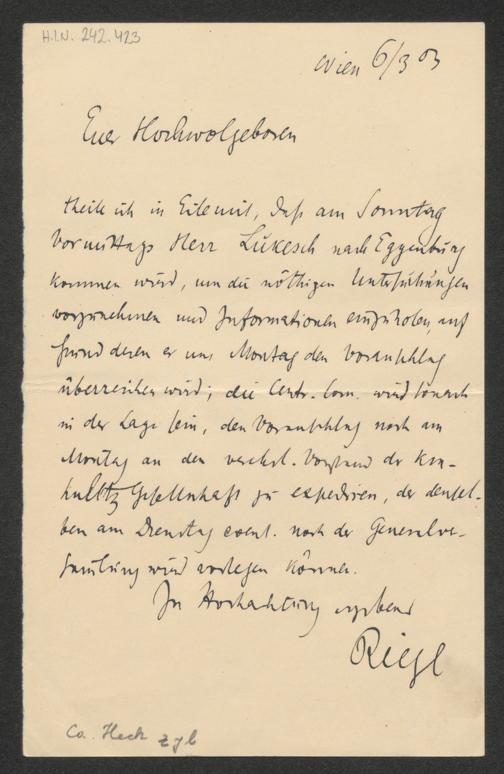 H.I.N. 242.423
Wien 6/3 03
Euer Hochwolgeboren
theile ich in Eile mit, daß am Sonntag
Vormittags Herr Lukesch nach Eggenburg
kommen wird, um die nöthigen Untersuchungen
vorzunehmen und Informationen einzuholen, auf
Grund deren er uns Montag den Voranschlag
überreichen wird; die Centr. Com. wird sonach
in der Lage sein, den Voranschlag noch am
Montag an den verehrl. Vorstand der
Gesellschaft zu expediren, der densel-
ben am Dienstag event. noch der Generalve-
samlung wird vorlegen können.
In Hochachtung ergebenst
Riegl
Ca. Heck